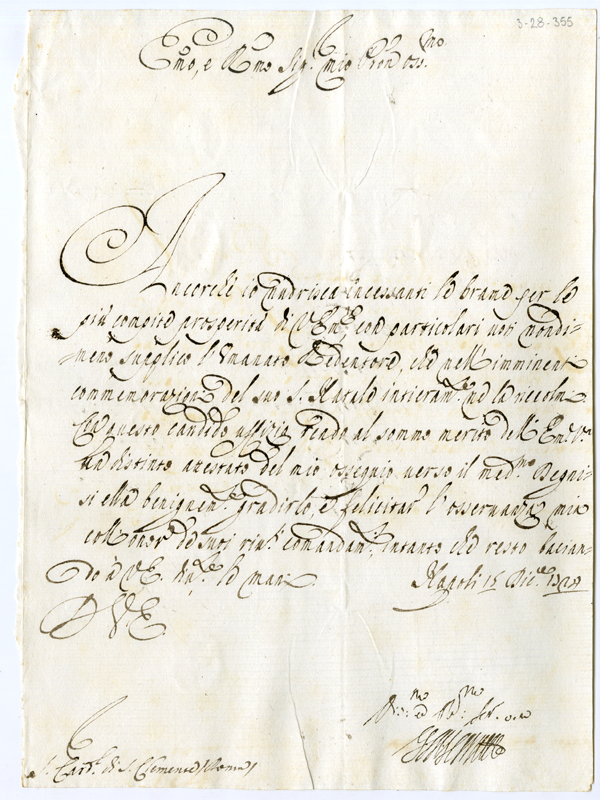 3-28-355
Em̃o, e Rm̃o Sig.r mio Pron Oss.mo
Ancorche io nudrisca incessanti le brame per le
più compite prosperità di V. Em.za con particolari voti nondi=
meno supplico l'Umanato Redentore, che nell'imminente
commemorazione del suo S. Natale intieram.te ne la ricolmi.
Con questo candido uffizio rendo al sommo merito dell'Em.za V.ra
un distinto attestato del mio ossequio verso il med.mo Degni=
si ella benignam.te gradirlo, e felicitar l'osservanza mia
coll'onor de suoi riv.ti comandam.ti, intanto che resto bacian=
do à V. E. um.te le mani
Napoli 15 Dic.re
D. V. E.
Div.mo ed Obb.mo Ser.
S. Card.l di S. Clemente (Roma)